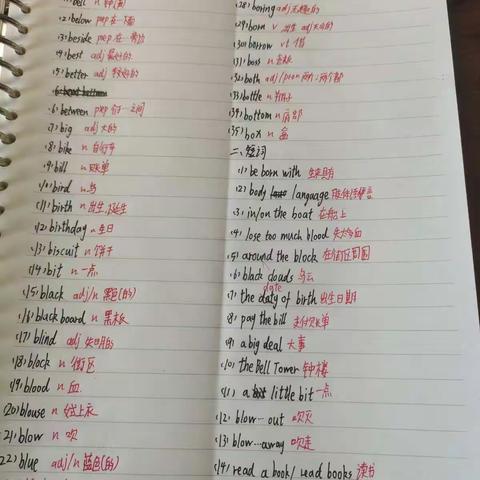 (1) bell n 钟(声)
(2) below prep 在…下面
(3) beside prep 在…旁边
(4) best adj 最好的
(5) better adj 较好的
(6) between prep 在…之间
(7) big adj 大的
(8) bike n 自行车
(9) bill n 账单
(10) bird n 鸟
(11) birth n 出生,诞生
(12) birthday n 生日
(13) biscuit n 饼干
(14) bit n 一点
(15) black adj/n 黑色(的)
(16) blackboard n 黑板
(17) blind adj 失明的
(18) block n 街区
(19) blood n 血
(20) blouse n 女上衣
(21) blow n 吹
(22) blue adj/n 蓝色(的)
(28) boring adj 无趣的
(29) born v 出生 adj 天生的
(30) borrow vt 借
(31) boss n 老板
(32) both adj/pron 两;两个都
(33) bottle n 瓶子
(34) bottom n 底部
(35) box n 盒
二、短词
(1) be born with 生来具有
(2) body language 肢体语言
(3) in/on the boat 在船上
(4) lose too much blood 失太多血
(5) around the block 在街区周围
(6) black clouds 乌云
(7) the date of birth 出生日期
(8) pay the bill 支付账单
(9) a big deal 大事
(10) the Bell Tower 钟楼
(11) a little bit 一点
(12) blow…out 吹灭
(13) blow…away 吹走
(14) read a book/read books 读书